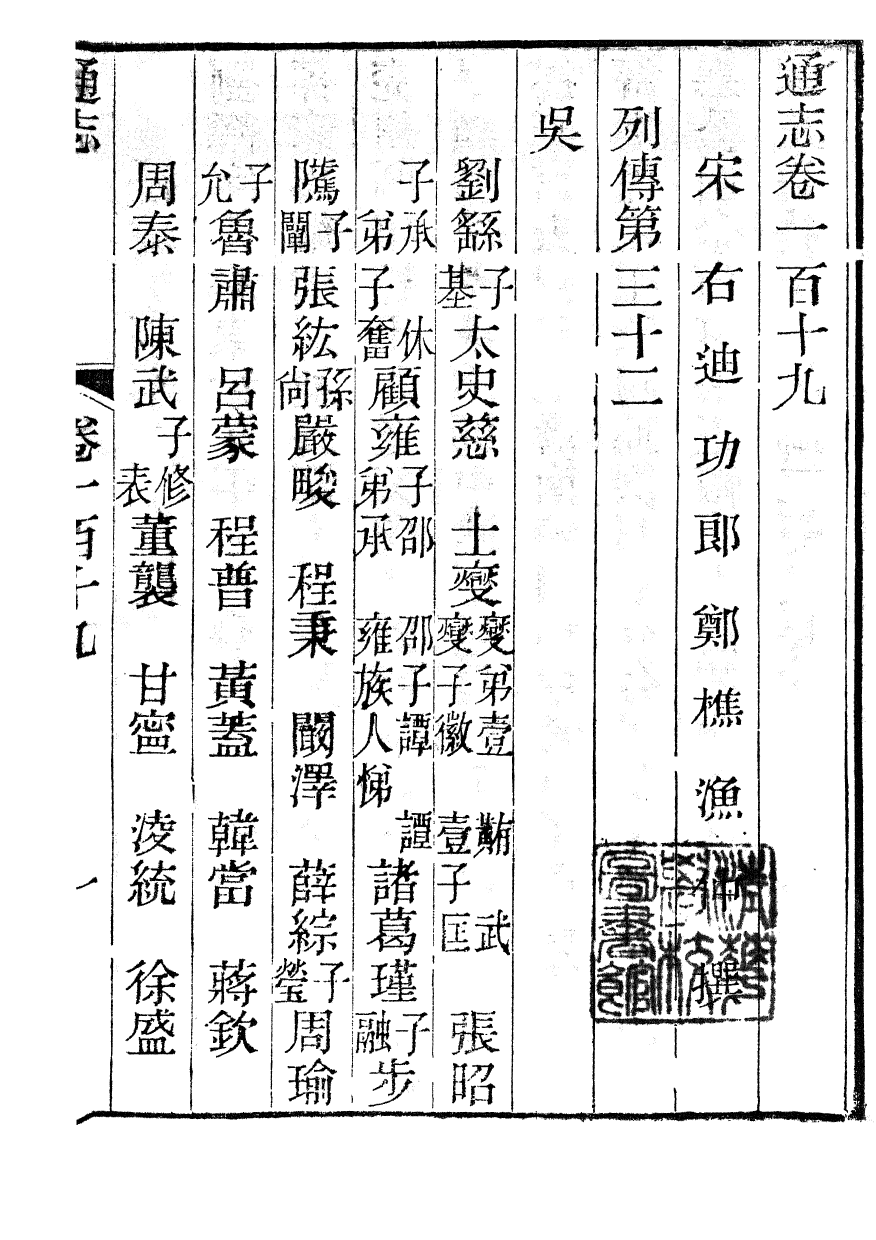 通志卷一百十九
宋右迪功郎鄭樵漁仲撰
列傳第三十二
吳
劉繇 子基 太史慈 士燮 燮弟壹 䵋 武 燮子徽 壹子匡 張昭
子承 休 弟子奮 顧雍 子邵 邵子譚 譚 弟承 雍族人悌 諸葛瑾 子融 步
隲 子闡 張紘 孫尚 嚴畯 程秉 闞澤 薛綜 子瑩 周瑜
子允 魯肅 呂蒙 程普 黃蓋 韓當 蔣欽
周泰 陳武 子修表 董襲 甘寍 淩統 徐盛
通志 卷一百十九 一